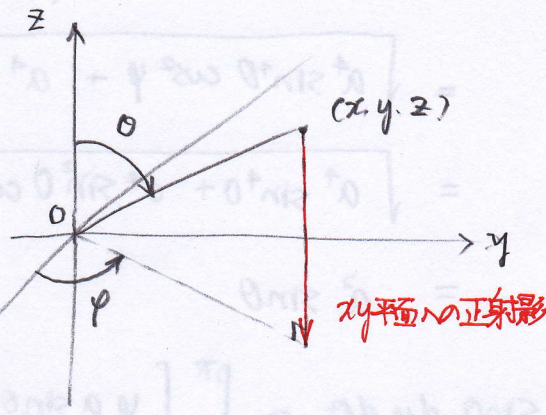 z
θ
(x, y, z)
O
y
φ
xy平面への正射影